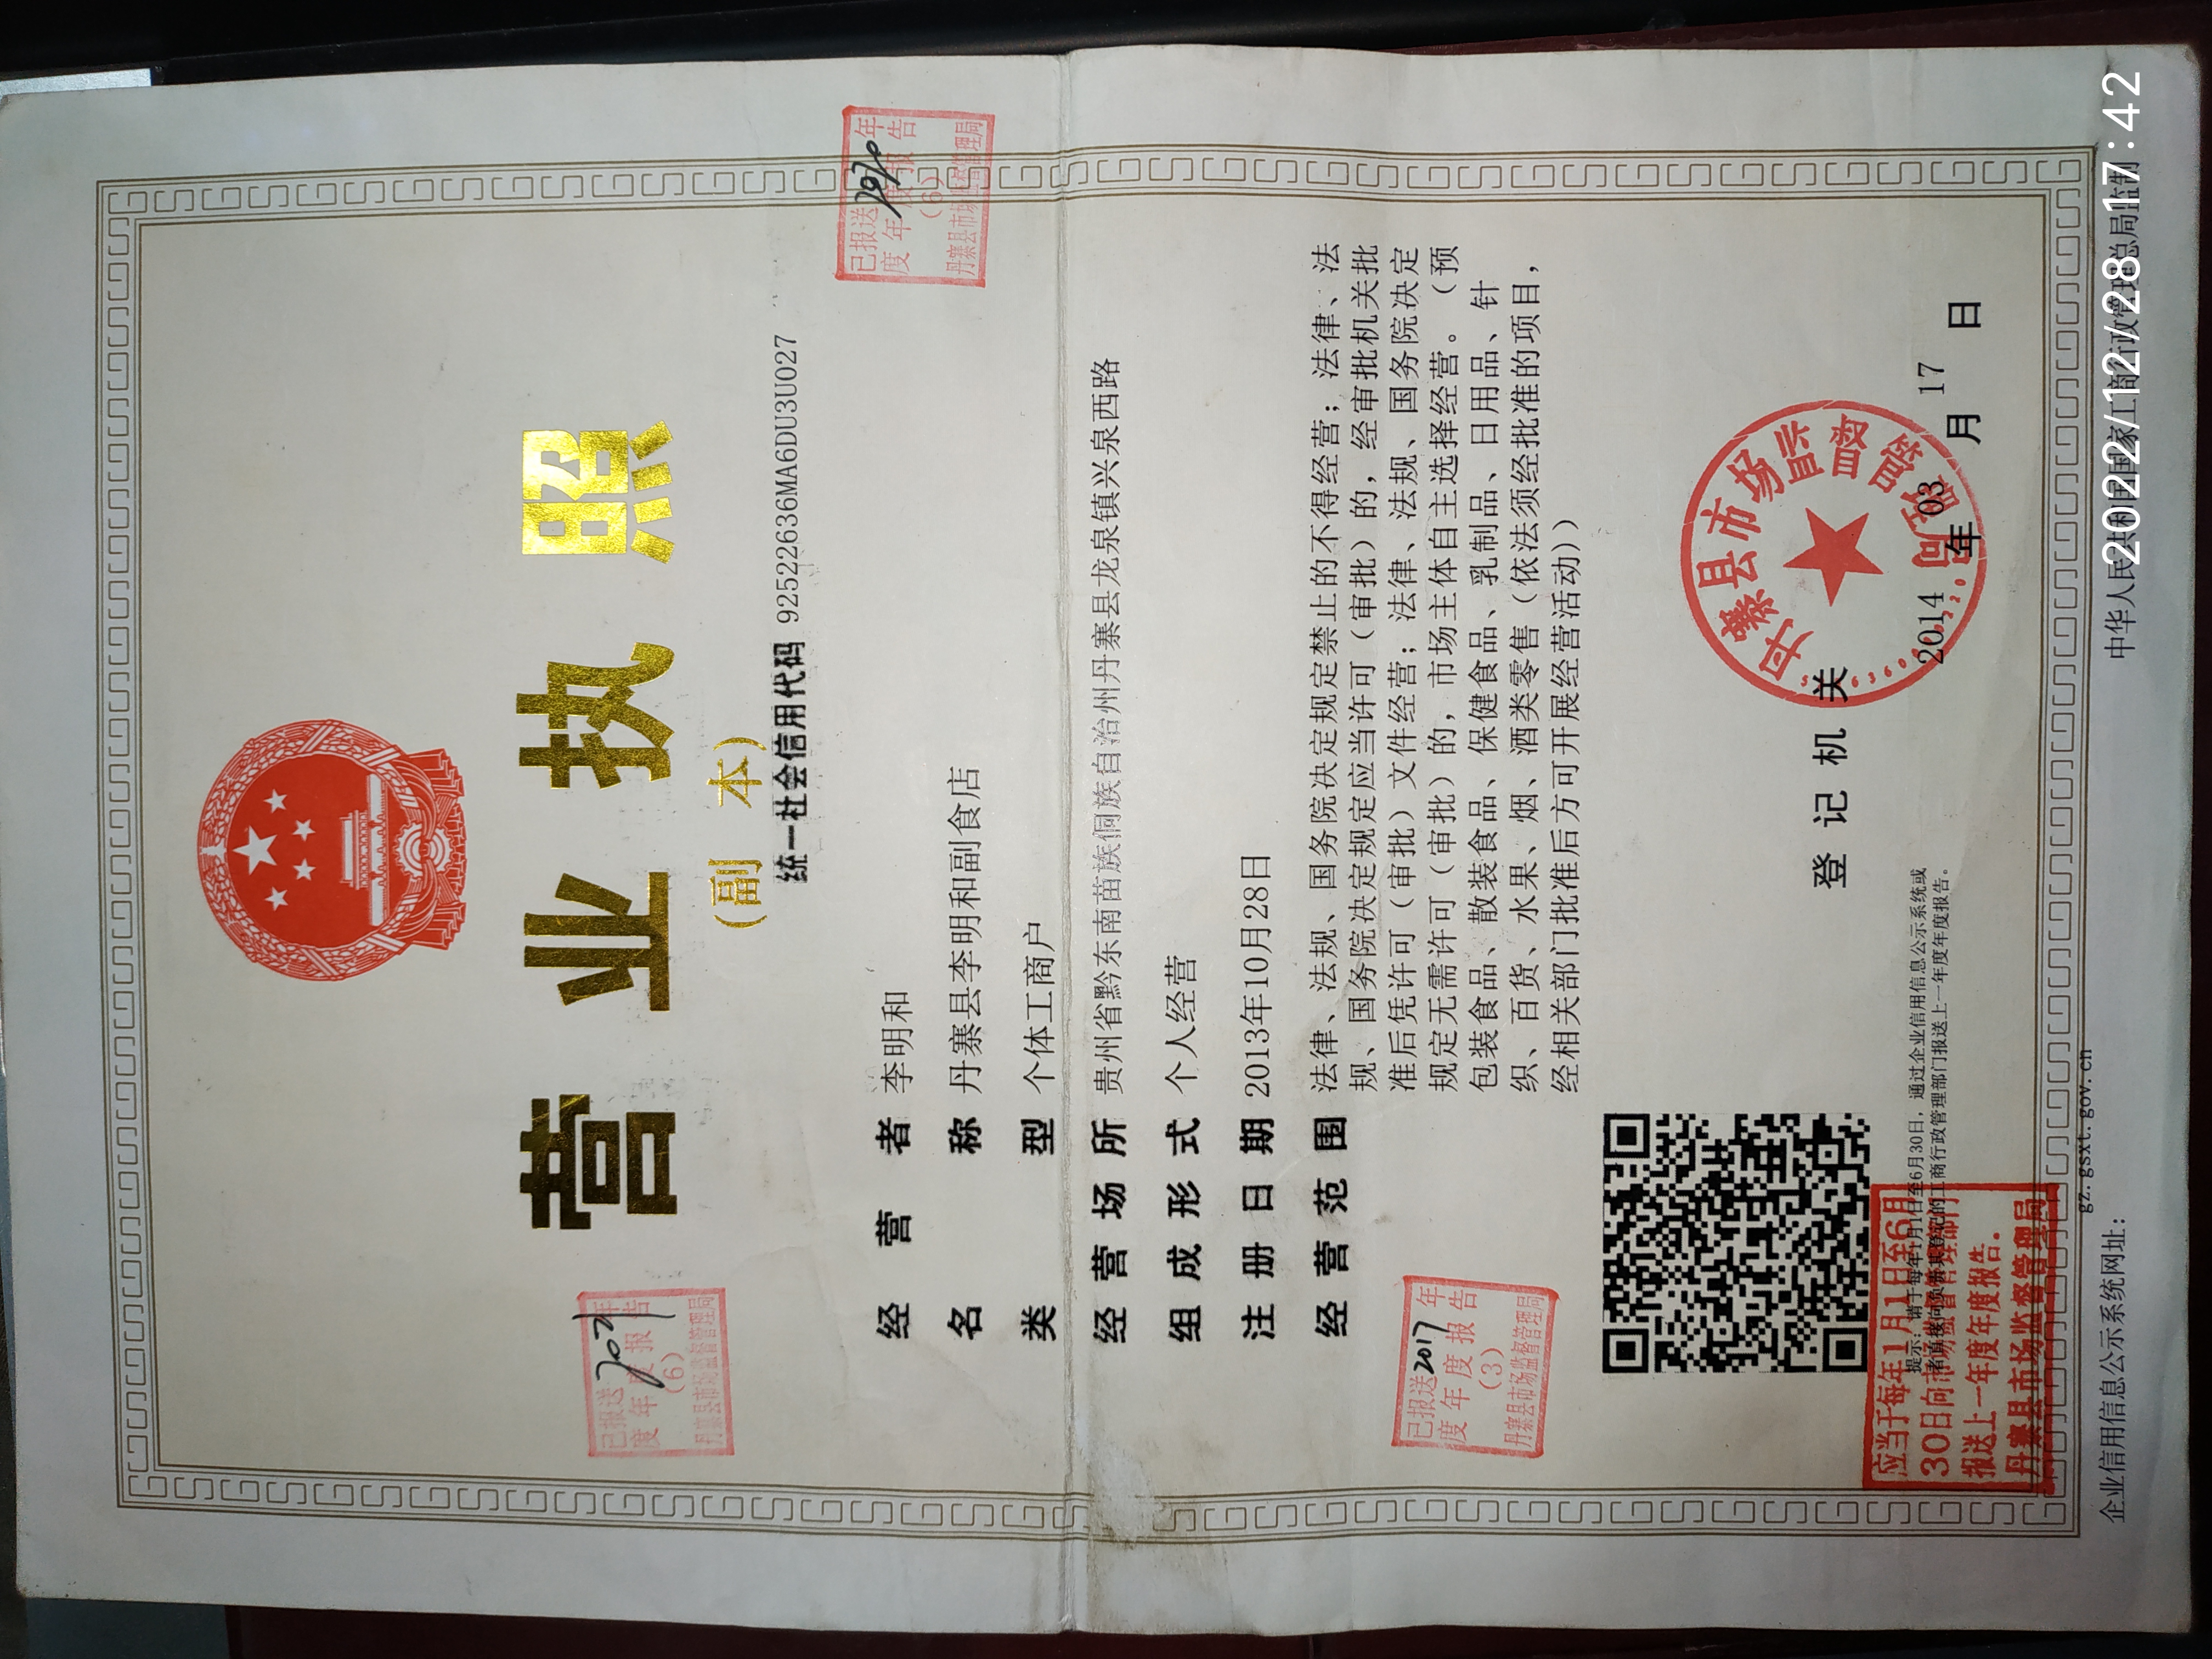 营业执照
(副 本)
统一社会信用代码 92522636MA6DU3U027
已报送 年
度年度报告
(6)
丹寨县市场监督管理局
已报送 年
度年度报告
(6)
丹寨县市场监督管理局
经营者 李明和
名称 丹寨县李明和副食店
类型 个体工商户
经营场所 贵州省黔东南苗族侗族自治州丹寨县龙泉镇兴泉西路
组成形式 个人经营
注册日期 2013年10月28日
经营范围 法律、法规、国务院决定规定禁止的不得经营；法律、法
规、国务院决定规定应当许可（审批）的，经审批机关批
准后凭许可（审批）文件经营；法律、法规、国务院决定
规定无需许可（审批）的，市场主体自主选择经营。（预
包装食品、散装食品、保健食品、乳制品、日用品、针
织、百货、水果、烟、酒类零售（依法须经批准的项目，
经相关部门批准后方可开展经营活动））
已报送2017年
度年度报告
(3)
丹寨县市场监督管理局
登记机关
丹寨县市场监督管理局
2014年03月17日
提示：请于每年1月1日至6月30日，通过企业信用信息公示系统或
者直接向负责其登记的工商行政管理部门报送上一年度年度报告。
应当于每年1月1日至6月
30日向市场监督管理部门
报送上一年度年度报告。
丹寨县市场监督管理局
企业信用信息公示系统网址：
gz.gsxt.gov.cn
中华人民共和国国家工商行政管理总局监制
2022/12/28 17:42